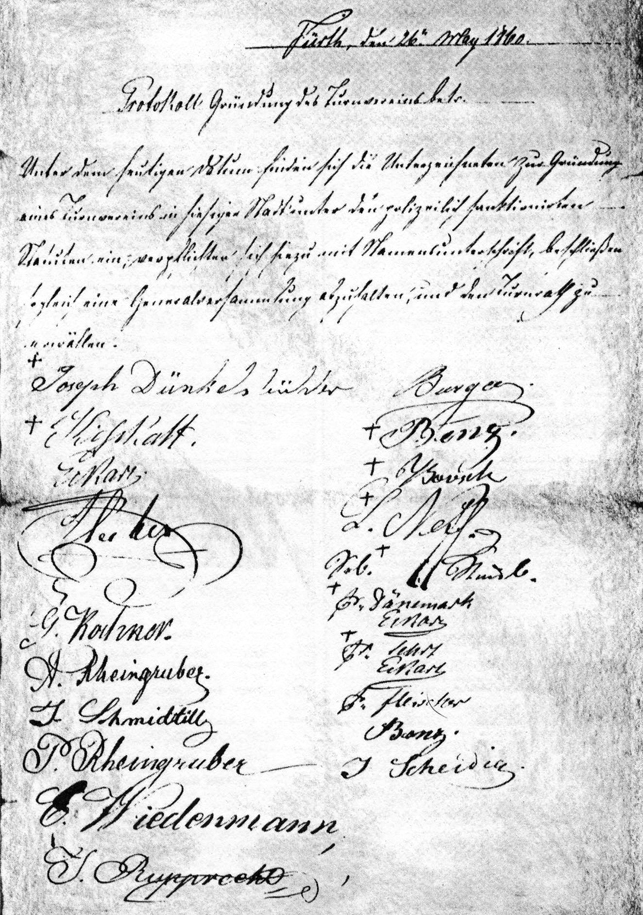 Fürth, den 26ten May 1860.
Protokoll Gründung des Turnvereins betr.
Unter dem heutigen Datum finden sich die Unterzeichneten zur Gründung
eines Turnvereins in hiesiger Stadt unter den polizeilich sanktionirten
Statuten ein, verpflichten sich hiezu mit Namensunterschrift, beschließen
sogleich eine Generalversammlung abzuhalten, und den Turnrath zu
erwählen.
Joseph Dünkelsbühler
Eckart
G. Kohner.
A. Rheingruber.
J. Schmidtill
P. Rheingruber
E. Wiedenmann,
J. Rupprecht
Burger.
Benz.
Seb.
Fr. Dänemark
Eckart
Fr.
Eckart
Fr. Fleischer
Benz.
J Scheidig.